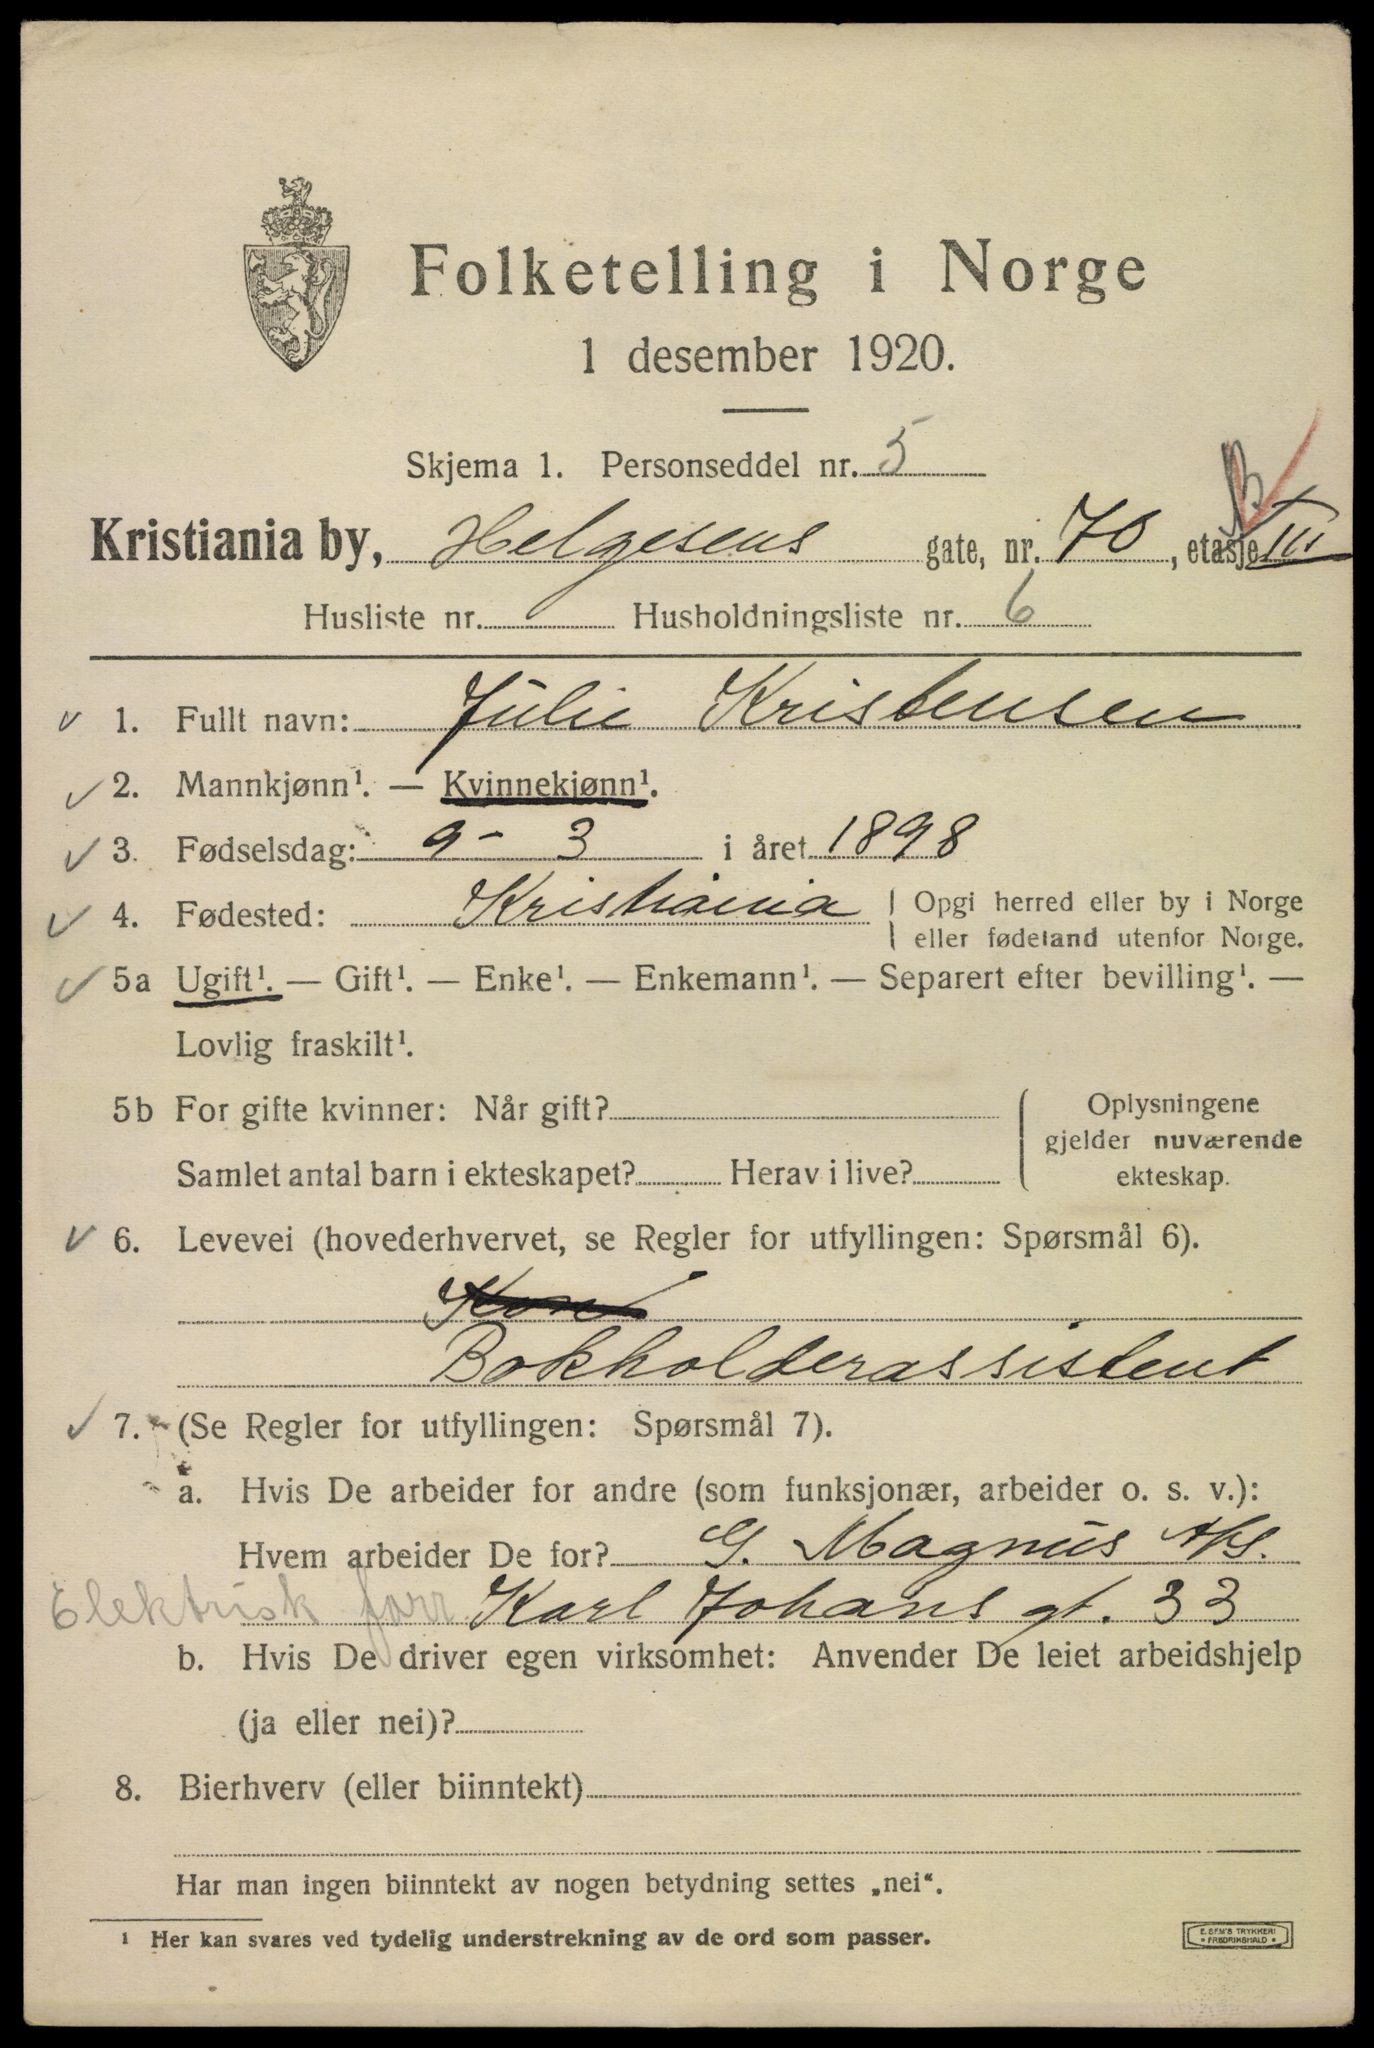 Folketelling i Norge
1 desember 1920.
Skjema 1. Personseddel nr. 5
Kristiania by, Helgesens gate, nr. 70, etasje III
Husliste nr. Husholdningsliste nr. 6
1. Fullt navn: Julie Kristensen
2. Mannkjønn¹. — Kvinnekjønn¹.
3. Fødselsdag: 9 - 3 i året 1898
4. Fødested: Kristiania
Opgi herred eller by i Norge
eller fødeland utenfor Norge.
5a Ugift¹. — Gift¹. — Enke¹. — Enkemann¹. — Separert efter bevilling¹. —
Lovlig fraskilt¹.
5b For gifte kvinner: Når gift?
Samlet antal barn i ekteskapet? Herav i live?
Oplysningene
gjelder nuværende
ekteskap.
6. Levevei (hovederhvervet, se Regler for utfyllingen: Spørsmål 6).
Bokholderassistent
7. (Se Regler for utfyllingen: Spørsmål 7).
a. Hvis De arbeider for andre (som funksjonær, arbeider o. s. v.):
Hvem arbeider De for? G. Magnus A/S.
Elektrisk forr Karl Johans gt. 33
b. Hvis De driver egen virksomhet: Anvender De leiet arbeidshjelp
(ja eller nei)?
8. Bierhverv (eller biinntekt)
Har man ingen biinntekt av nogen betydning settes „nei“.
¹ Her kan svares ved tydelig understrekning av de ord som passer.
E. SEM'S TRYKKERI
FREDRIKSHALD